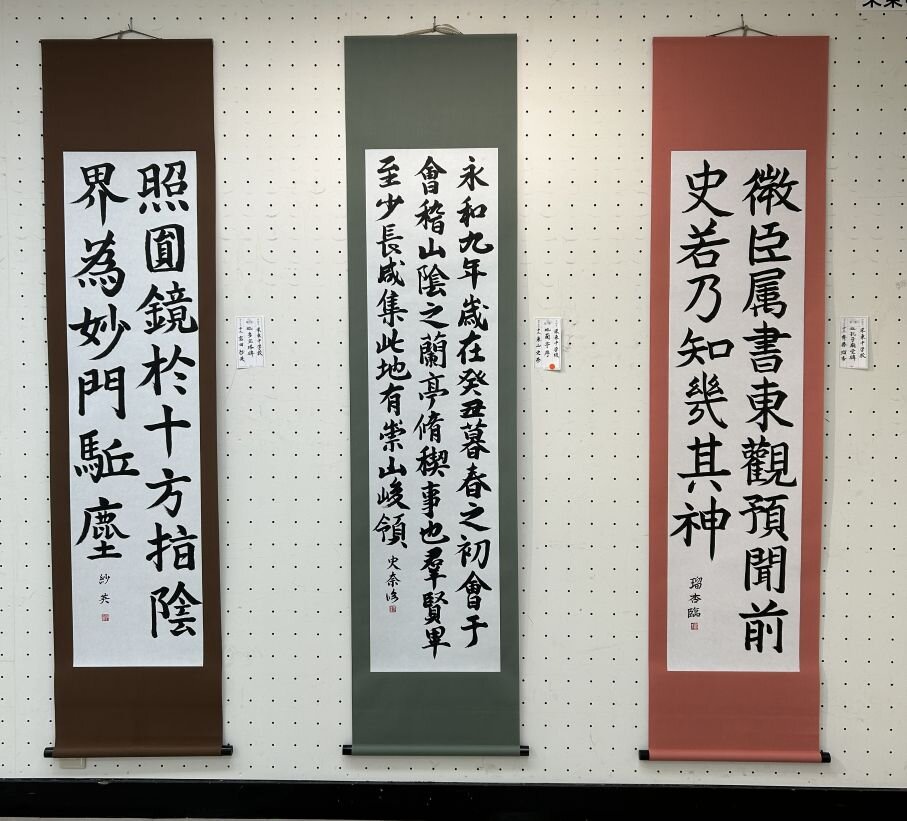 微臣属書東觀預聞前
史若乃知幾其神
瑠杏臨
永和九年歳在癸丑暮春之初會于
會稽山陰之蘭亭脩稧事也羣賢畢
至少長咸集此地有崇山峻領
照圓鏡於十方指陰
界為妙門駈塵
紗英